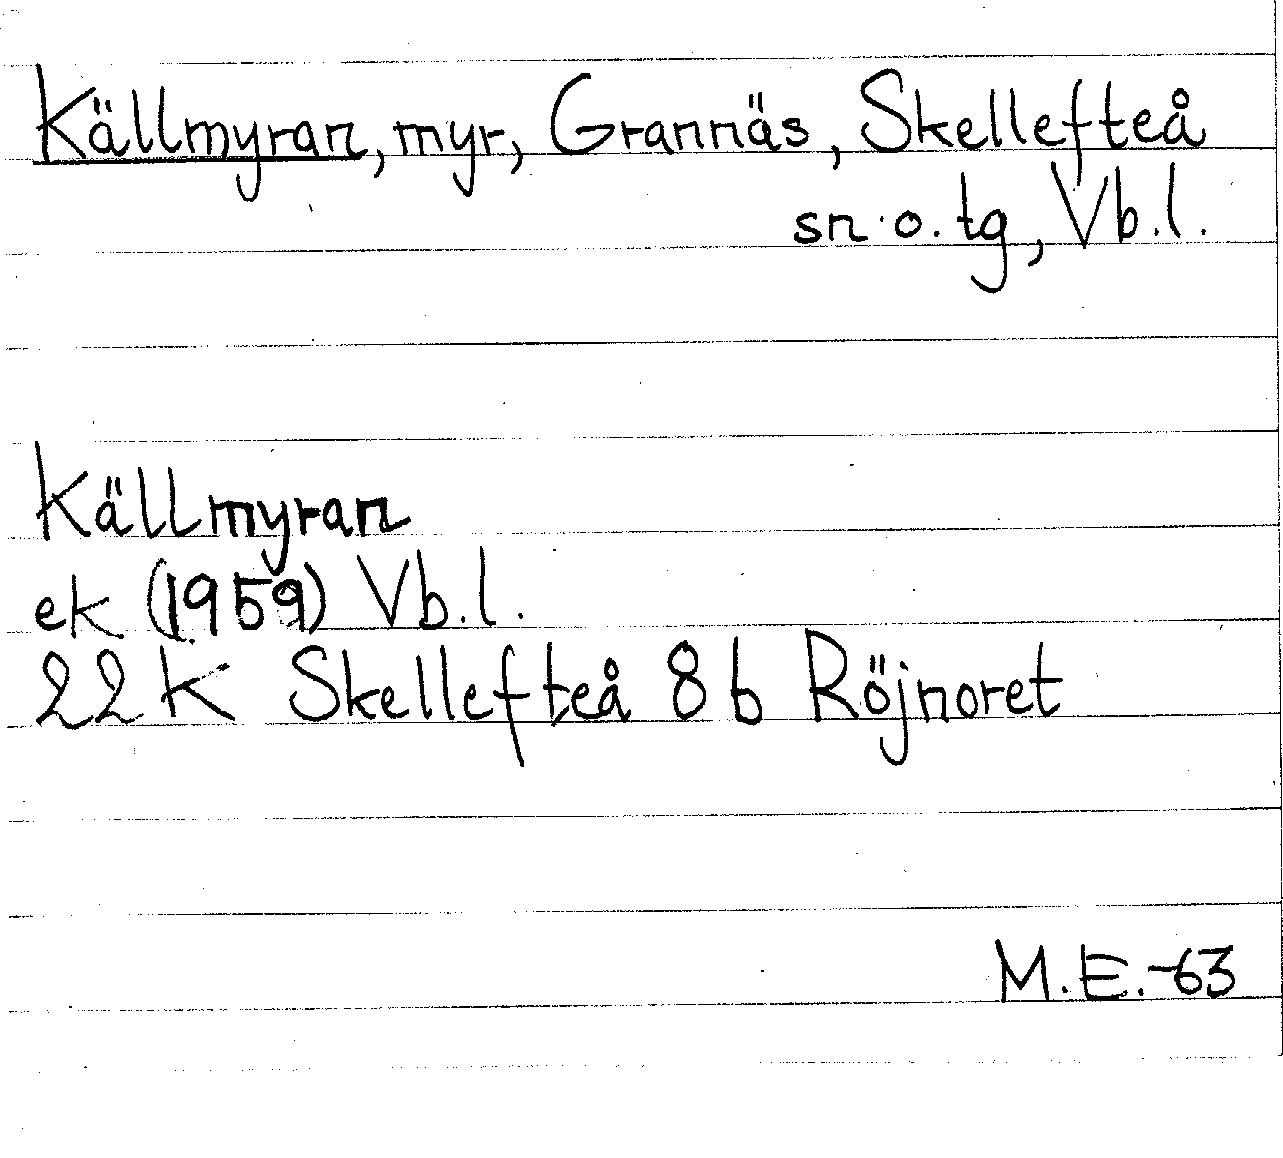 Källmyran, myr, Grannäs, Skellefteå
sn o. tg, Vb.l.
Källmyran
ek (1959) Vb.l.
22 K Skellefteå 8 b Röjnoret
M.E.-63